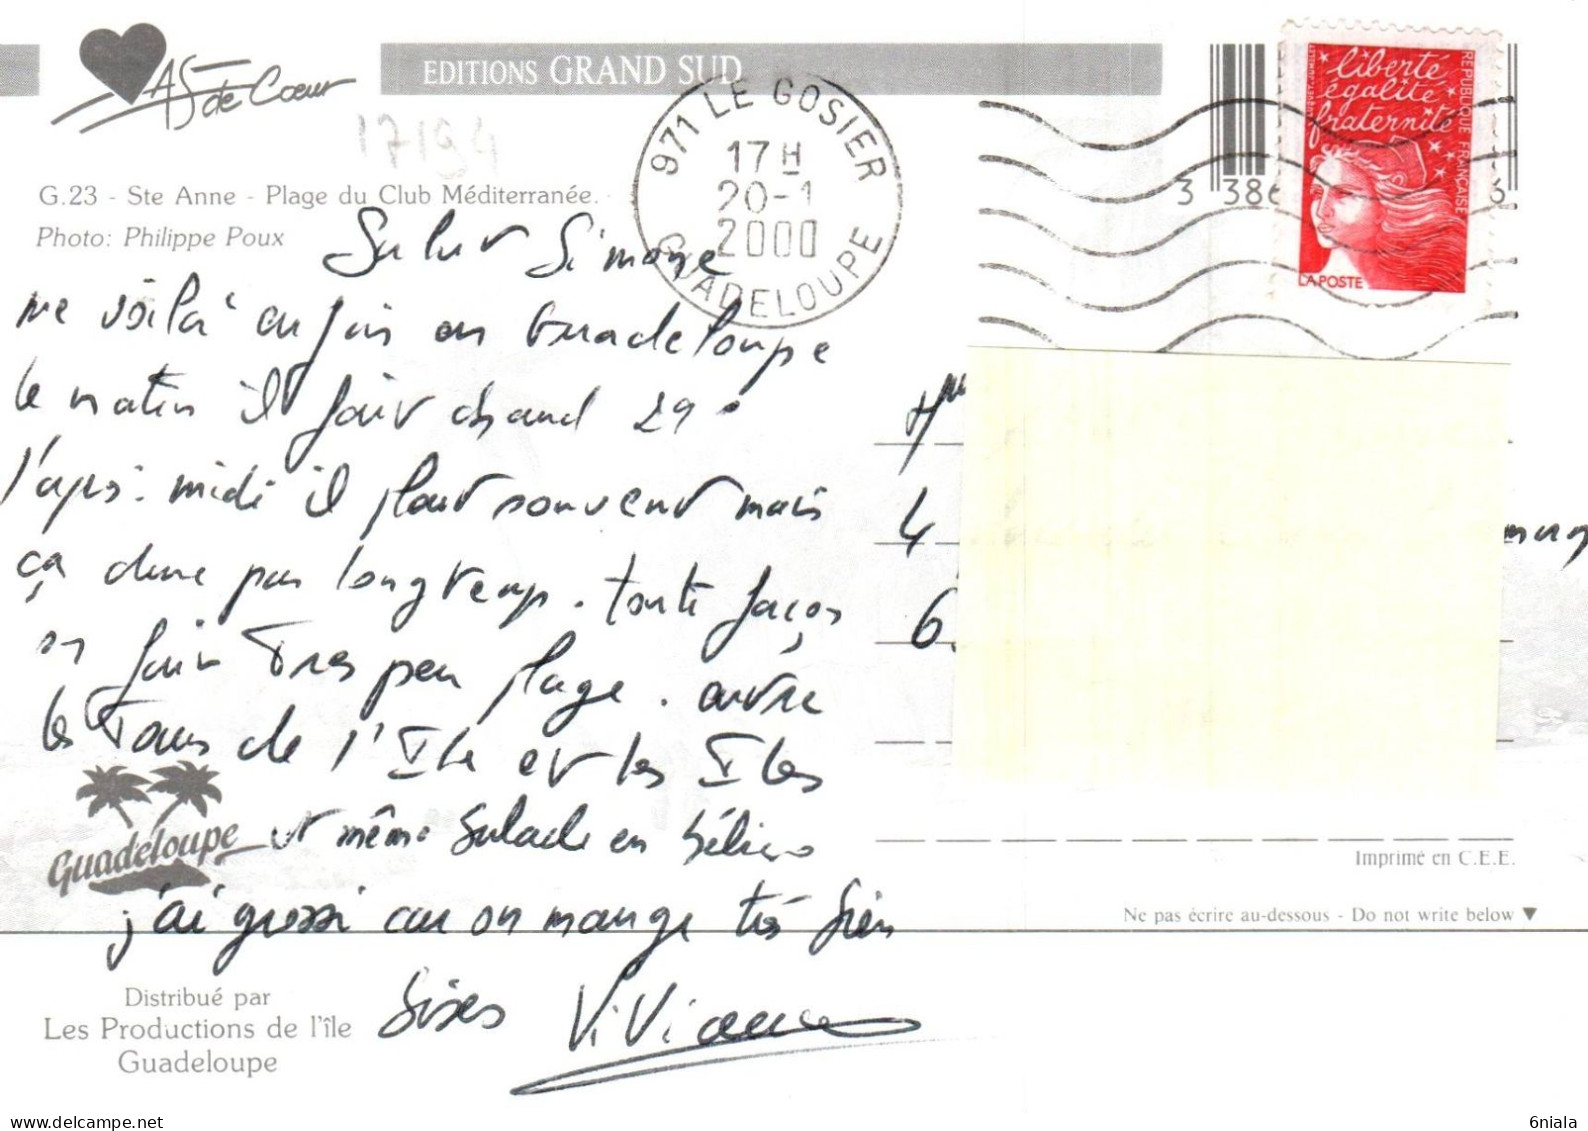 AS de Cœur
EDITIONS GRAND SUD
17194
G.23 - Ste Anne - Plage du Club Méditerranée.
Photo: Philippe Poux
971 LE GOSIER
17 H
20-1
2000
GUADELOUPE
liberté
égalité
fraternité
REPUBLIQUE FRANÇAISE
LA POSTE
3 386
6
Salut Simone
me voilà enfin en Guadeloupe
le matin il fait chaud 29°
l'après-midi il pleut souvent mais
ça dure pas longtemp. toute façon
on fait Tres peu plage. entre
les Tours de l'Ile et les Iles
et même Balade en hélico
j'ai grossi car on mange très bien
Bises Viviane
4
6
Guadeloupe
Imprimé en C.E.E.
Ne pas écrire au-dessous - Do not write below ▼
Distribué par
Les Productions de l'île
Guadeloupe
6niala